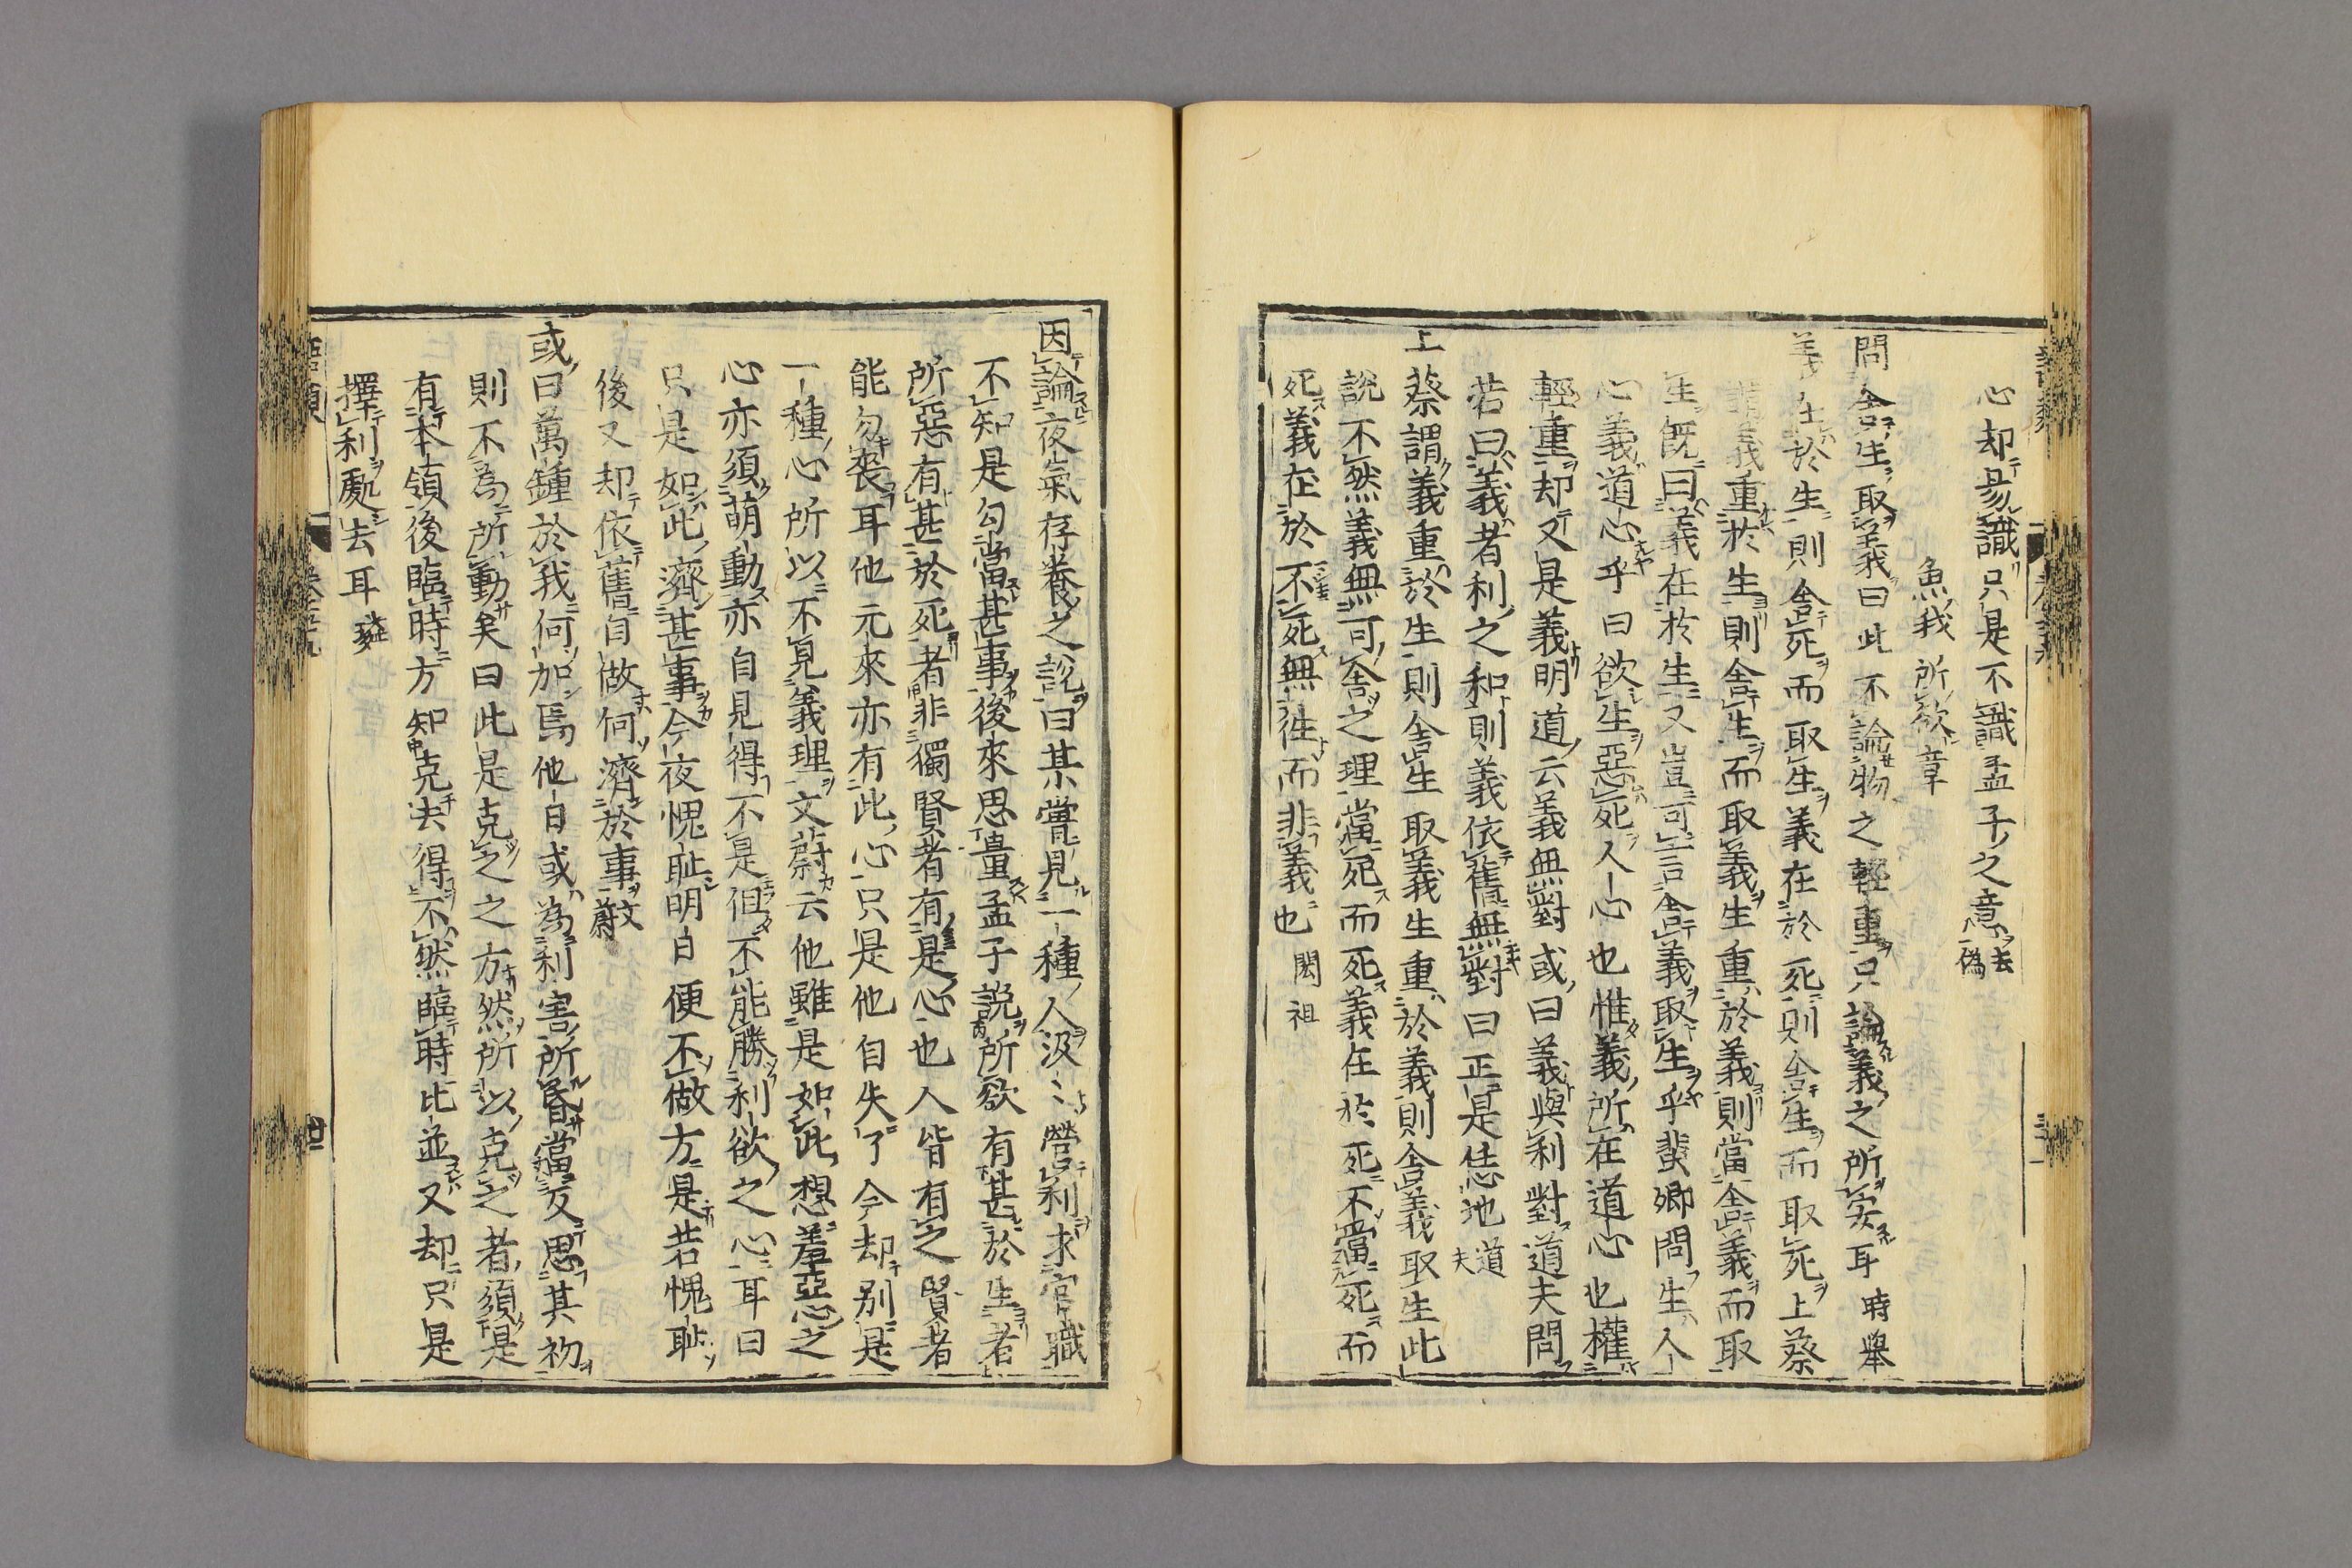 心却易識只是不識孟子之意去偽
魚我所欲章
問舍生取義曰此不論物之輕重只論義之所安耳時舉
義在於生則舍死而取生義在於死則舍生而取死上蔡
謂義重於生則舍生而取義生重於義則當舍義而取
生既曰義在於生又豈可言舍義取生乎蜚卿問生人
心義道心乎曰欲生惡死人心也惟義所在道心也權
輕重却又是義明道云義無對或曰義與利對道夫問
若曰義者利之和則義依舊無對曰正是恁地道夫
上蔡謂義重於生則舍生取義生重於義則舍義取生此
說不然義無可舍之理當死而死義在於死不當死而
死義在於不死無往而非義也閎祖
因論夜氣存養之說曰某嘗見一種人汲〻營利求官職
不知是勾當甚事後來思量孟子說所欲有甚於生者
所惡有甚於死者非獨賢者有是心也人皆有之賢者
能勿喪耳他元來亦有此心只是他自失了今却別是
一種心所以不見義理文蔚云他雖是如此想羞惡之
心亦須萌動亦自見得不是但不能勝利欲之心耳曰
只是如此濟甚事今夜愧恥明日便不做方是若愧恥
後又却依舊自做何濟於事文蔚
或曰萬鍾於我何加焉他日或為利害所昏當反思其初
則不為所動矣曰此是克之之方然所以克之者須是
有本領後臨時方知克去得不然臨時比並又却只是
擇利處去耳㽦